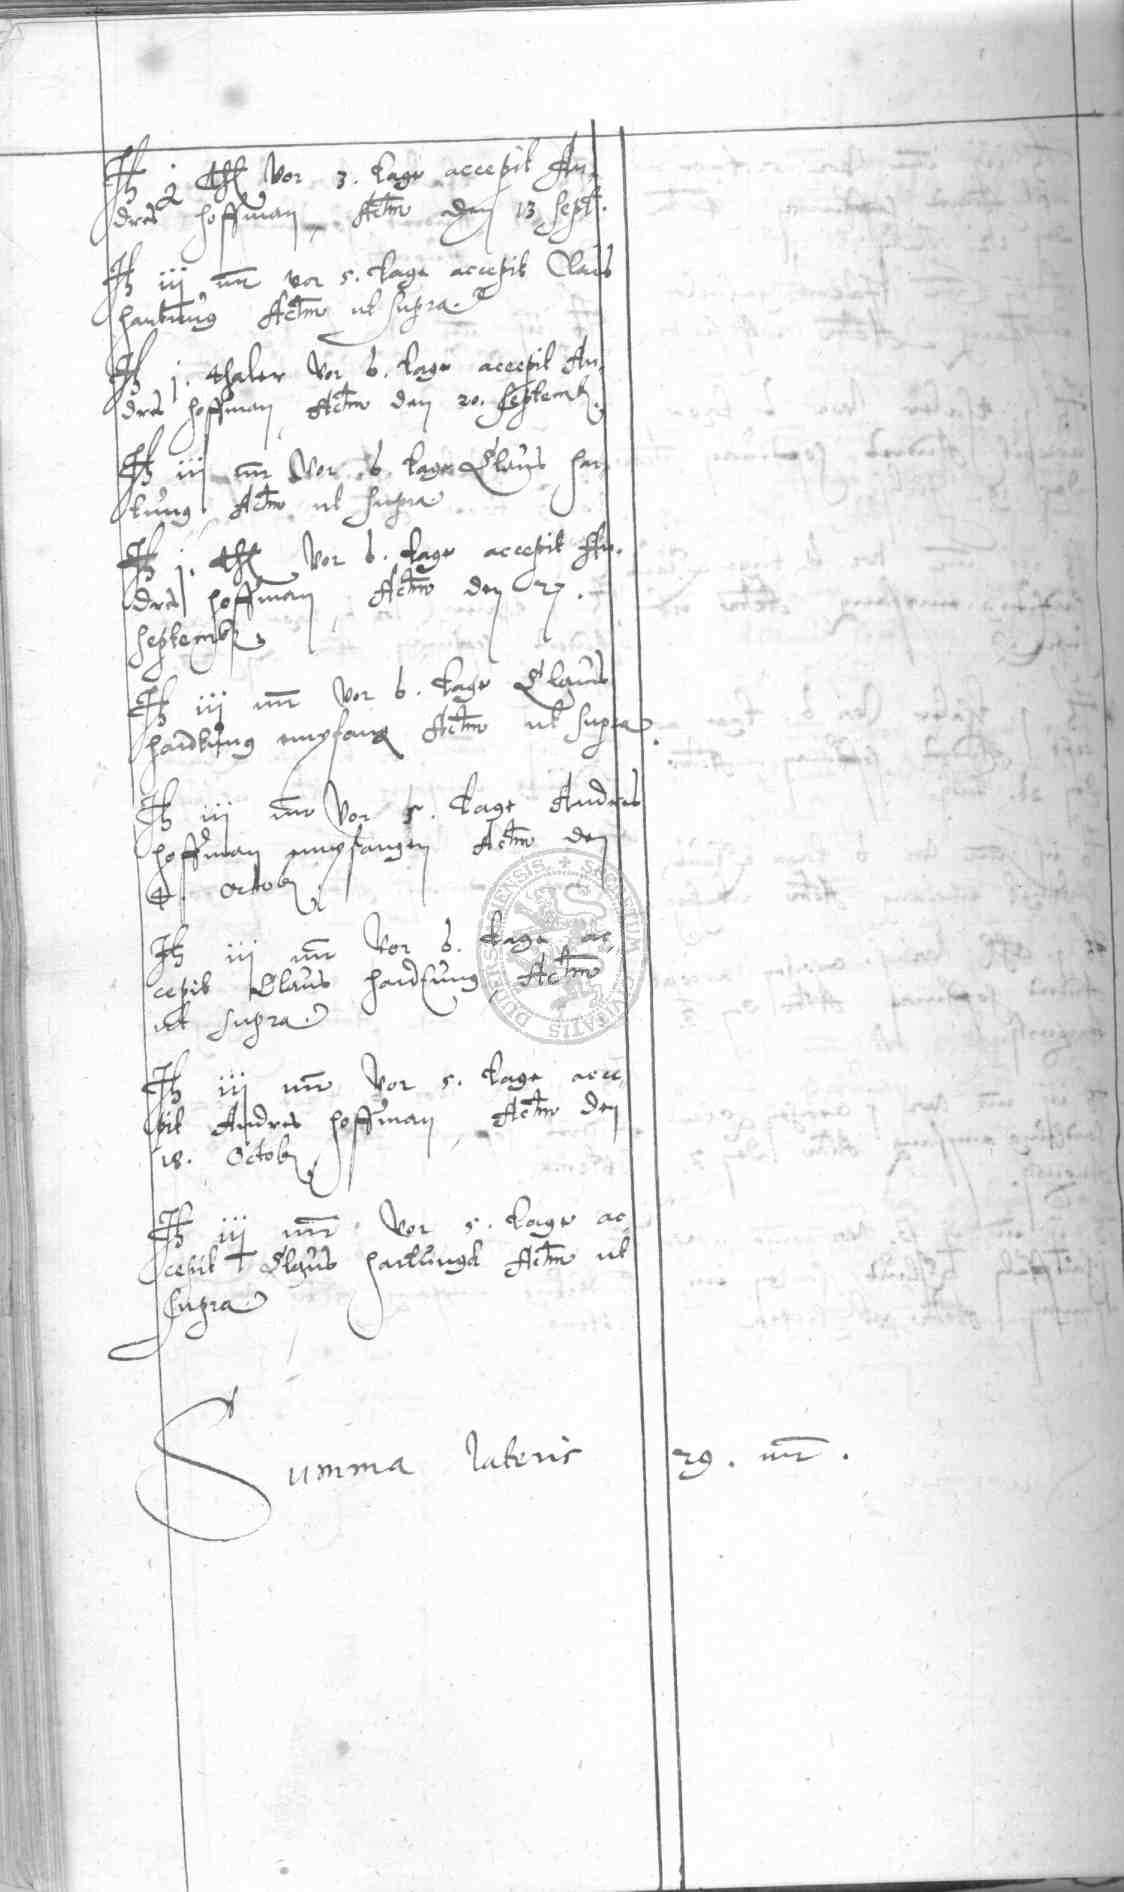 It j thl vor 3. tage accepit An,
dres hoffman, Actm den 13 Sept.
It iij mr vor 5. tage accepit Claus
hartung Actm ut supra.
It j. thaler vor 6. tage accepit An,
dres hoffman Actm den 20. Septemb.
It iij mr vor 6. tage Claus har,
tung Actm ut supra
It j. thl vor 6. tage accepit An,
dres hoffman Actm den 27.
Septemb.
It iij mr vor 6. tage Claus
hardtung empfang Actm ut supra.
It iij mr vor 5. tage Andres
hoffman empfangen Actm den
4. Octob.
It iij mr vor 6. tage ac,
cepit Claus hardtung, Actm
ut supra.
It iij mr vor 5. tage acce,
pit Andres hoffman, Actm den
18. Octob.
It iij mr vor 5. tage ac,
cepit Claus hartung Actm ut
supra.
Summa lateris 29. mr.
SIGILLUM CIVITATIS DUDERSTADENSIS